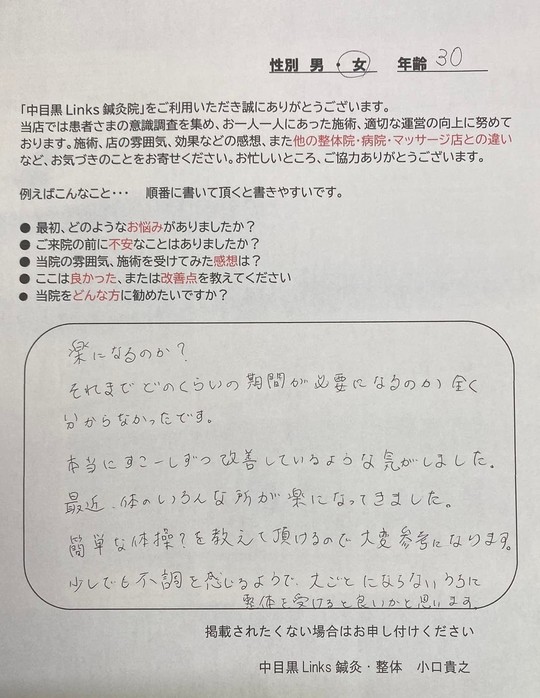 性別 男 ・ 女 年齢 30
「中目黒Links鍼灸院」をご利用いただき誠にありがとうございます。
当店では患者さまの意識調査を集め、お一人一人にあった施術、適切な運営の向上に努めて
おります。施術、店の雰囲気、効果などの感想、また他の整体院・病院・マッサージ店との違い
など、お気づきのことをお寄せください。お忙しいところ、ご協力ありがとうございます。
例えばこんなこと・・・ 順番に書いて頂くと書きやすいです。
● 最初、どのようなお悩みがありましたか？
● ご来院の前に不安なことはありましたか？
● 当院の雰囲気、施術を受けてみた感想は？
● ここは良かった、または改善点を教えてください
● 当院をどんな方に勧めたいですか？
楽になるのか？
それまでどのくらいの期間が必要になるのか全く
分からなかったです。
本当にすこーしずつ改善しているような気がしました。
最近、体のいろんな所が楽になってきました。
簡単な体操？を教えて頂けるので大変参考になります。
少しでも不調を感じるようで、大ごとにならないうちに
整体を受けると良いかと思います。
掲載されたくない場合はお申し付けください
中目黒Links鍼灸・整体 小口貴之